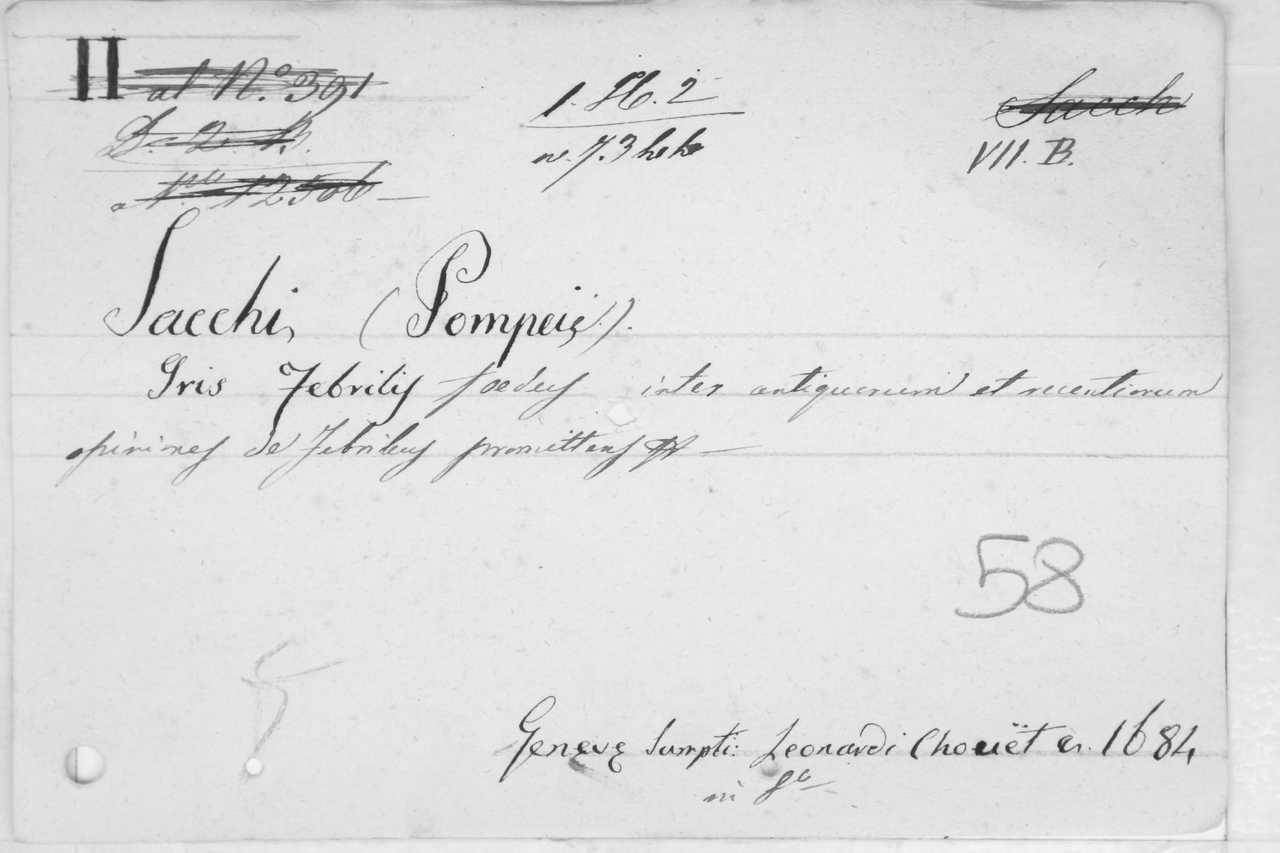 II al N.º 391
D. 2. B.
a N.ru 12506
1. H. 2
n. 7.3 h h
Sacch
VII. B.
Sacchi, (Pompeię).
Iris Febrilis foedus inter antiquorum et recentiorum
opiniones de Febribus promittens
58
5
Genevę Sumpti: Leonardi Chouët er. 1684
in 8º